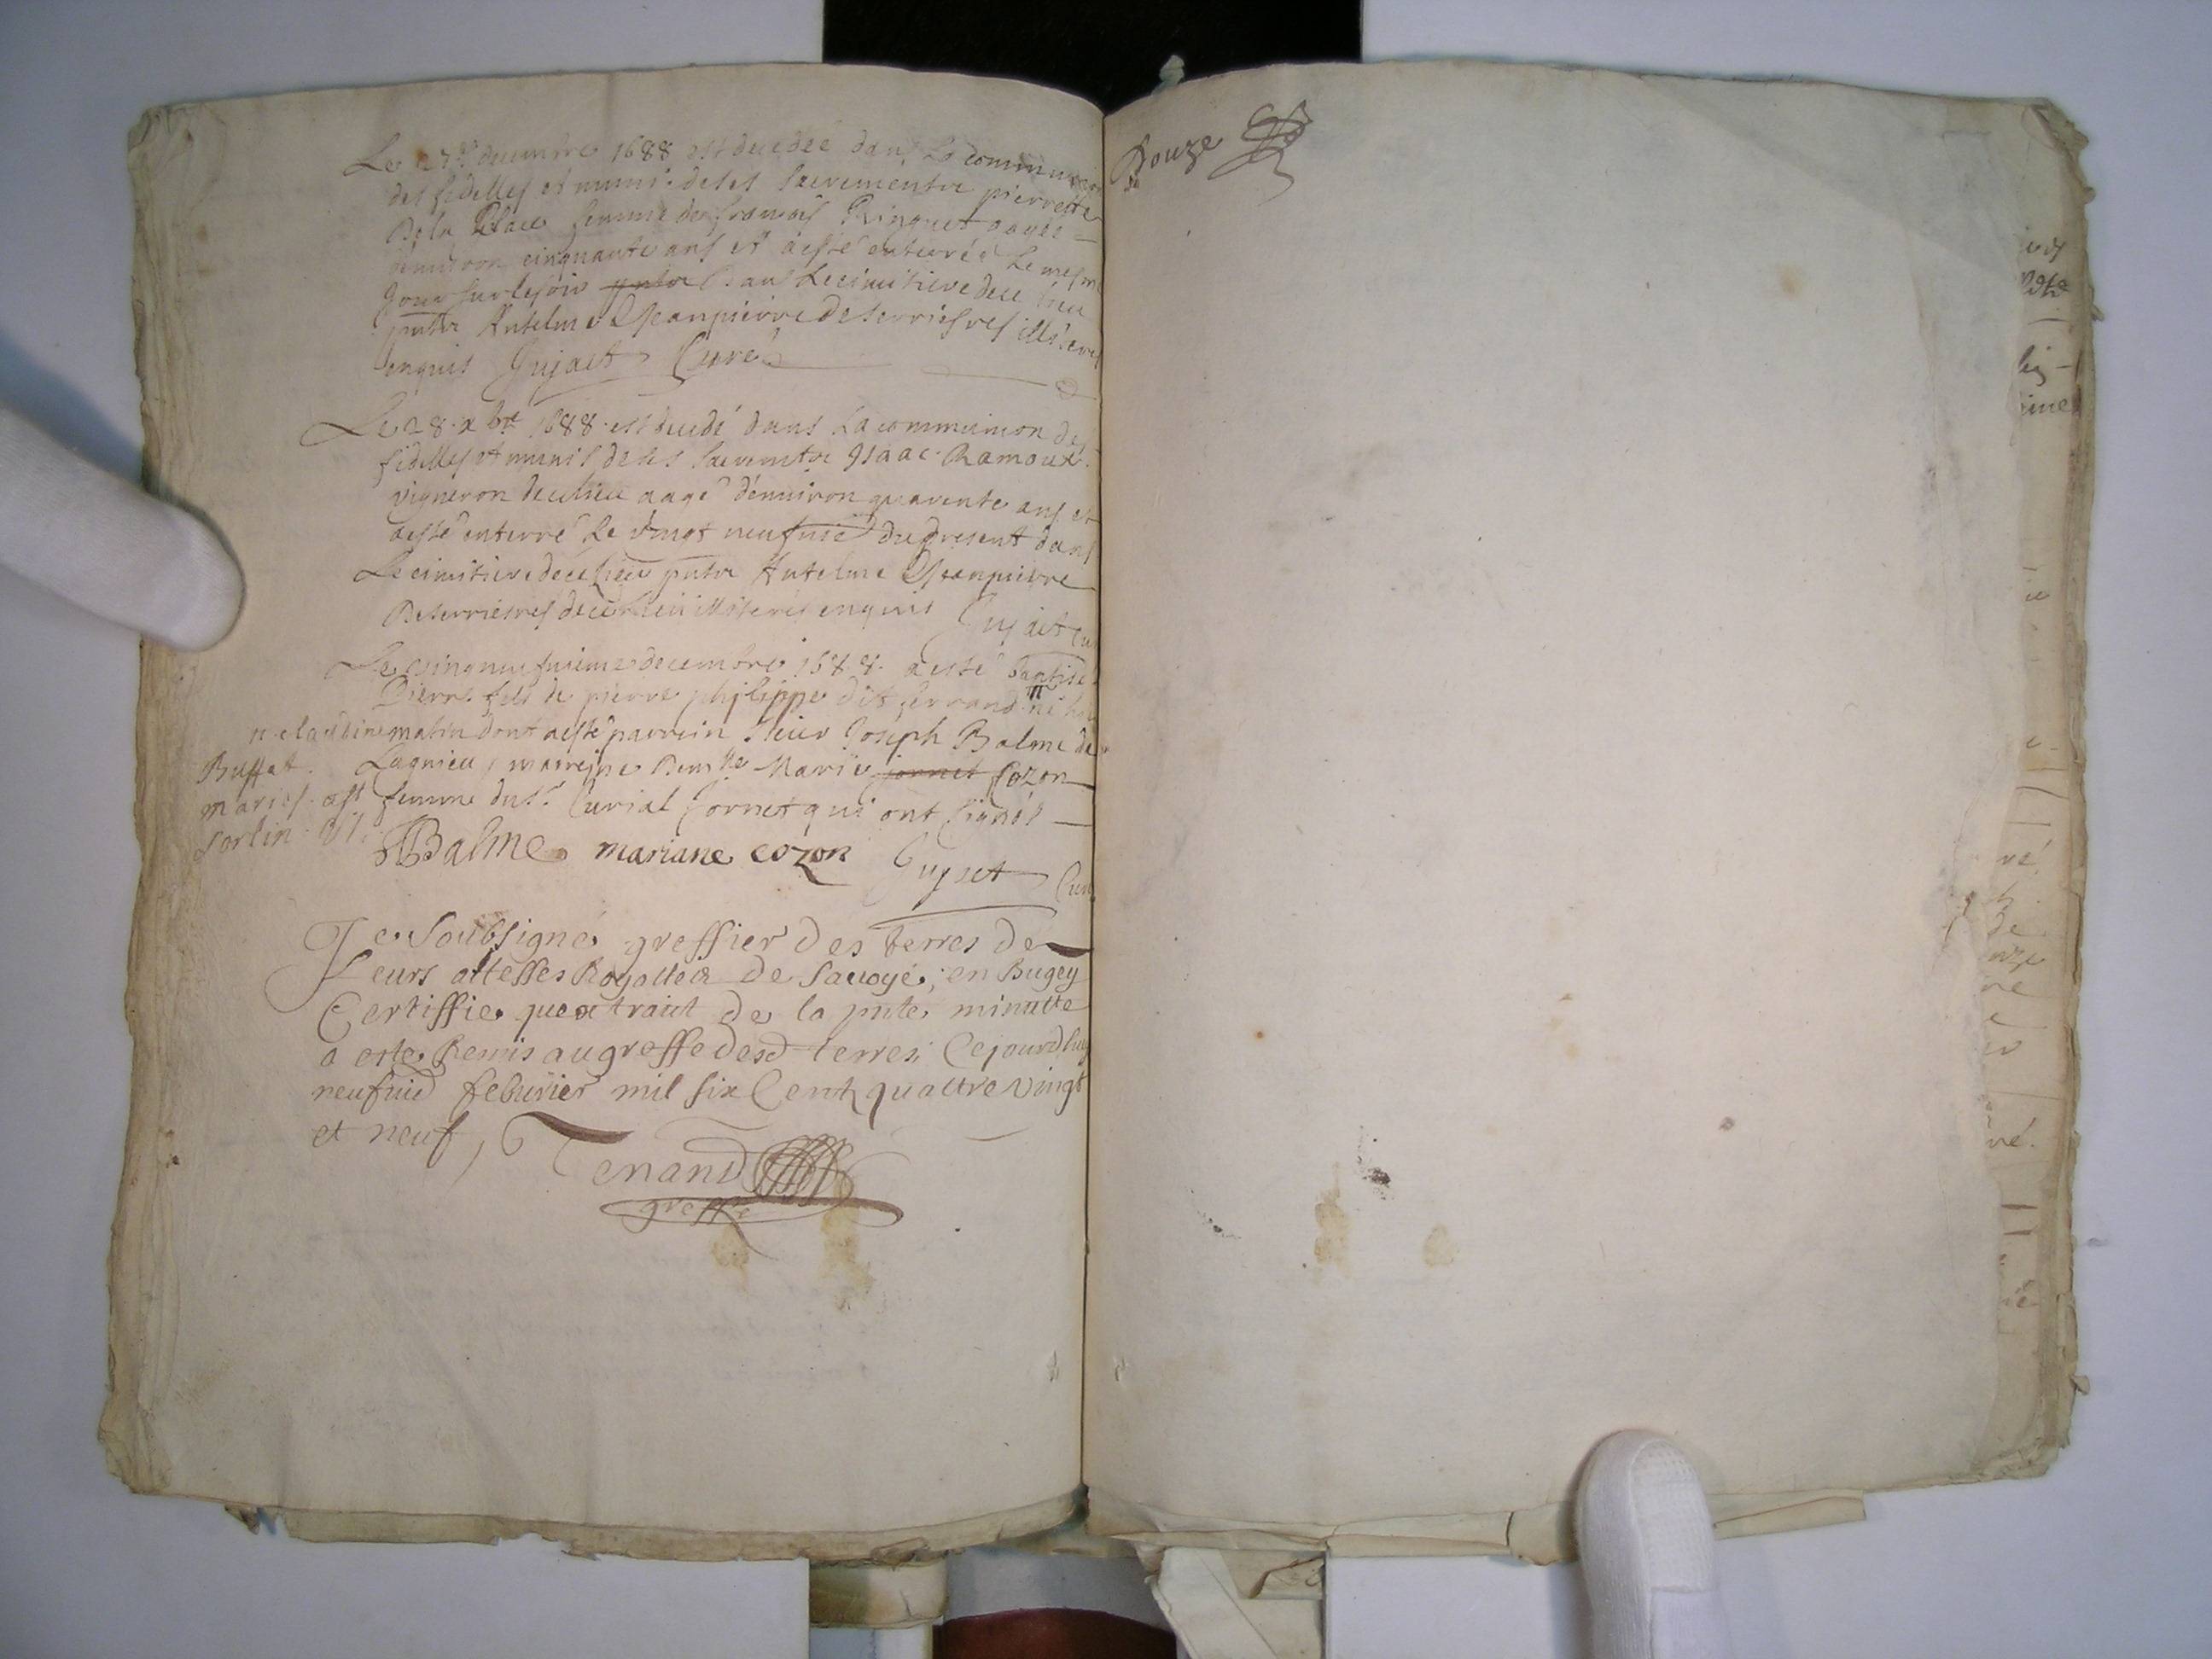 Le 27e decembre 1688 est decedée dans la communion
des fidelles et munie de ses sacrements pierrette
De la Place femme de francois Ringuet aagée
d'environ cinquante ans et a esté enterrée Le mesme
Jour sur le soir dans Le cimitiere de ce lieu
pntz Antelme & Jeanpierre Deserriesres illiterés
enquis Gujact Curé
Le 28 xbre 1688 est decedé dans La communion des
fidelles et munis de ses sacrementz Isaac Ramoux
vigneron de ce lieu aagé d'environ quarente ans et
a esté enterré Le vingt neufuie du present dans
Le cimitiere de ce lieu pntz Antelme & Jeanpierre
Deserriesres de ce lieu illiterés enquis Gujact Cu
Le vingneufuieme decembre 1688 a esté baptisé
Pierre fils de pierre philippe dit ferrand
n claudine matin dont a esté parrein Sieur Joseph Balme de
Buffat Lagnieu, marreine Demlle Marie jornet Cozon
mariés femme du Sr Curial Jornet qui ont signés
sorlin
JBalme mariane cozon Gujact Cur
Je Soubsigné greffier des terres de
Leurs altesses Royalles de Sauoye, en Bugey
Certiffie quextrait de la pnte minutte
a este Remis au greffe desd terres Cejourdhuy
neufuie feburier mil six Cent quattre vingt
et neuf,
Tenand
greffie
Douze